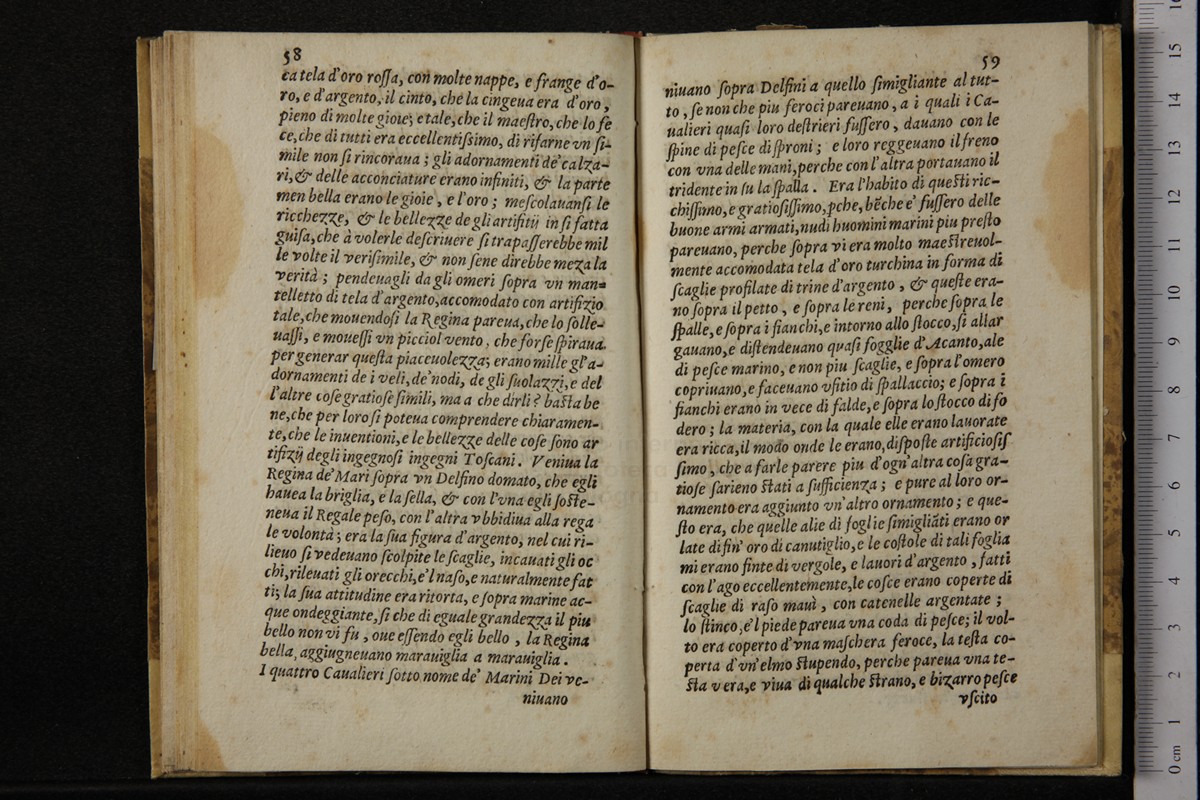 58
ca tela d'oro roſſa, con molte nappe, e frange d'o-
ro, e d'argento, il cinto, che la cingeua era d'oro,
pieno di molte gioie; e tale, che il maeſtro, che lo fe
ce, che di tutti era eccellentiſsimo, di rifarne vn ſi-
mile non ſi rincoraua; gli adornamenti de' calza-
ri, & delle acconciature erano infiniti, & la parte
men bella erano le gioie, e l'oro; meſcolauanſi le
ricchezze, & le bellezze de gli artifitÿ in ſi fatta
guiſa, che à volerle deſcriuere ſi trapaſſerebbe mil
le volte il veriſimile, & non ſene direbbe meza la
verità; pendeuagli da gli omeri ſopra vn man-
telletto di tela d'argento, accomodato con artifizio
tale, che mouendoſi la Regina pareua, che lo ſolle-
uaſſi, e moueſſi vn picciol vento, che forſe ſpiraua
per generar queſta piaceuolezza; erano mille gl'a-
dornamenti de i veli, de' nodi, de gli ſuolazzi, e del
l'altre coſe gratioſe ſimili, ma a che dirli? baſta be
ne, che per loro ſi poteua comprendere chiaramen-
te, che le inuentioni, e le bellezze delle coſe ſono ar
tifizÿ degli ingegnoſi ingegni Toſcani. Veniua la
Regina de' Mari ſopra vn Delfino domato, che egli
hauea la briglia, e la ſella, & con l'vna egli ſoſte-
neua il Regale peſo, con l'altra vbbidiua alla rega
le volontà; era la ſua figura d'argento, nel cui ri-
lieuo ſi vedeuano ſcolpite le ſcaglie, incauati gli oc
chi, rileuati gli orecchi, e'l naſo, e naturalmente fat
ti; la ſua attitudine era ritorta, e ſopra marine ac-
que ondeggiante, ſi che di eguale grandezza il piu
bello non vi fu, oue eſſendo egli bello, la Regina
bella, aggiugneuano marauiglia a marauiglia.
I quattro Caualieri ſotto nome de' Marini Dei ve-
niuano
59
niuano ſopra Delfini a quello ſimigliante al tut-
to, ſe non che piu feroci pareuano, a i quali i Ca-
ualieri quaſi loro deſtrieri fuſſero, dauano con le
ſpine di peſce di ſproni; e loro reggeuano il freno
con vna delle mani, perche con l'altra portauano il
tridente in ſu la ſpalla. Era l'habito di queſti ric-
chiſſimo, e gratioſiſſimo, pche, bẽche e' fuſſero delle
buone armi armati, nudi huomini marini piu preſto
pareuano, perche ſopra vi era molto maeſtreuol-
mente accomodata tela d'oro turchina in forma di
ſcaglie profilate di trine d'argento, & queſte era-
no ſopra il petto, e ſopra le reni, perche ſopra le
ſpalle, e ſopra i fianchi, e intorno allo ſtocco, ſi allar
gauano, e diſtendeuano quaſi fogglie d'Acanto, ale
di peſce marino, e non piu ſcaglie, e ſopra l'omero
copriuano, e faceuano vfitio di ſpallaccio; e ſopra i
fianchi erano in vece di falde, e ſopra lo ſtocco di fo
dero; la materia, con la quale elle erano lauorate
era ricca, il modo onde le erano, diſpoſte artificioſiſ
ſimo, che a farle parere piu d'ogn'altra coſa gra-
tioſe ſarieno ſtati a ſufficienza; e pure al loro or-
namento era aggiunto vn'altro ornamento; e que-
ſto era, che quelle alie di foglie ſimigliãti erano or
late di fin' oro di canutiglio, e le coſtole di tali foglia
mi erano finte di vergole, e lauori d'argento, fatti
con l'ago eccellentemente, le coſce erano coperte di
ſcaglie di raſo mauì, con catenelle argentate;
lo ſtinco, e'l piede pareua vna coda di peſce; il vol-
to era coperto d'vna maſchera feroce, la teſta co-
perta d'vn'elmo ſtupendo, perche pareua vna te-
ſta vera, e viua di qualche ſtrano, e bizarro peſce
vſcito
0 cm 1 2 3 4 5 6 7 8 9 10 11 12 13 14 15 16